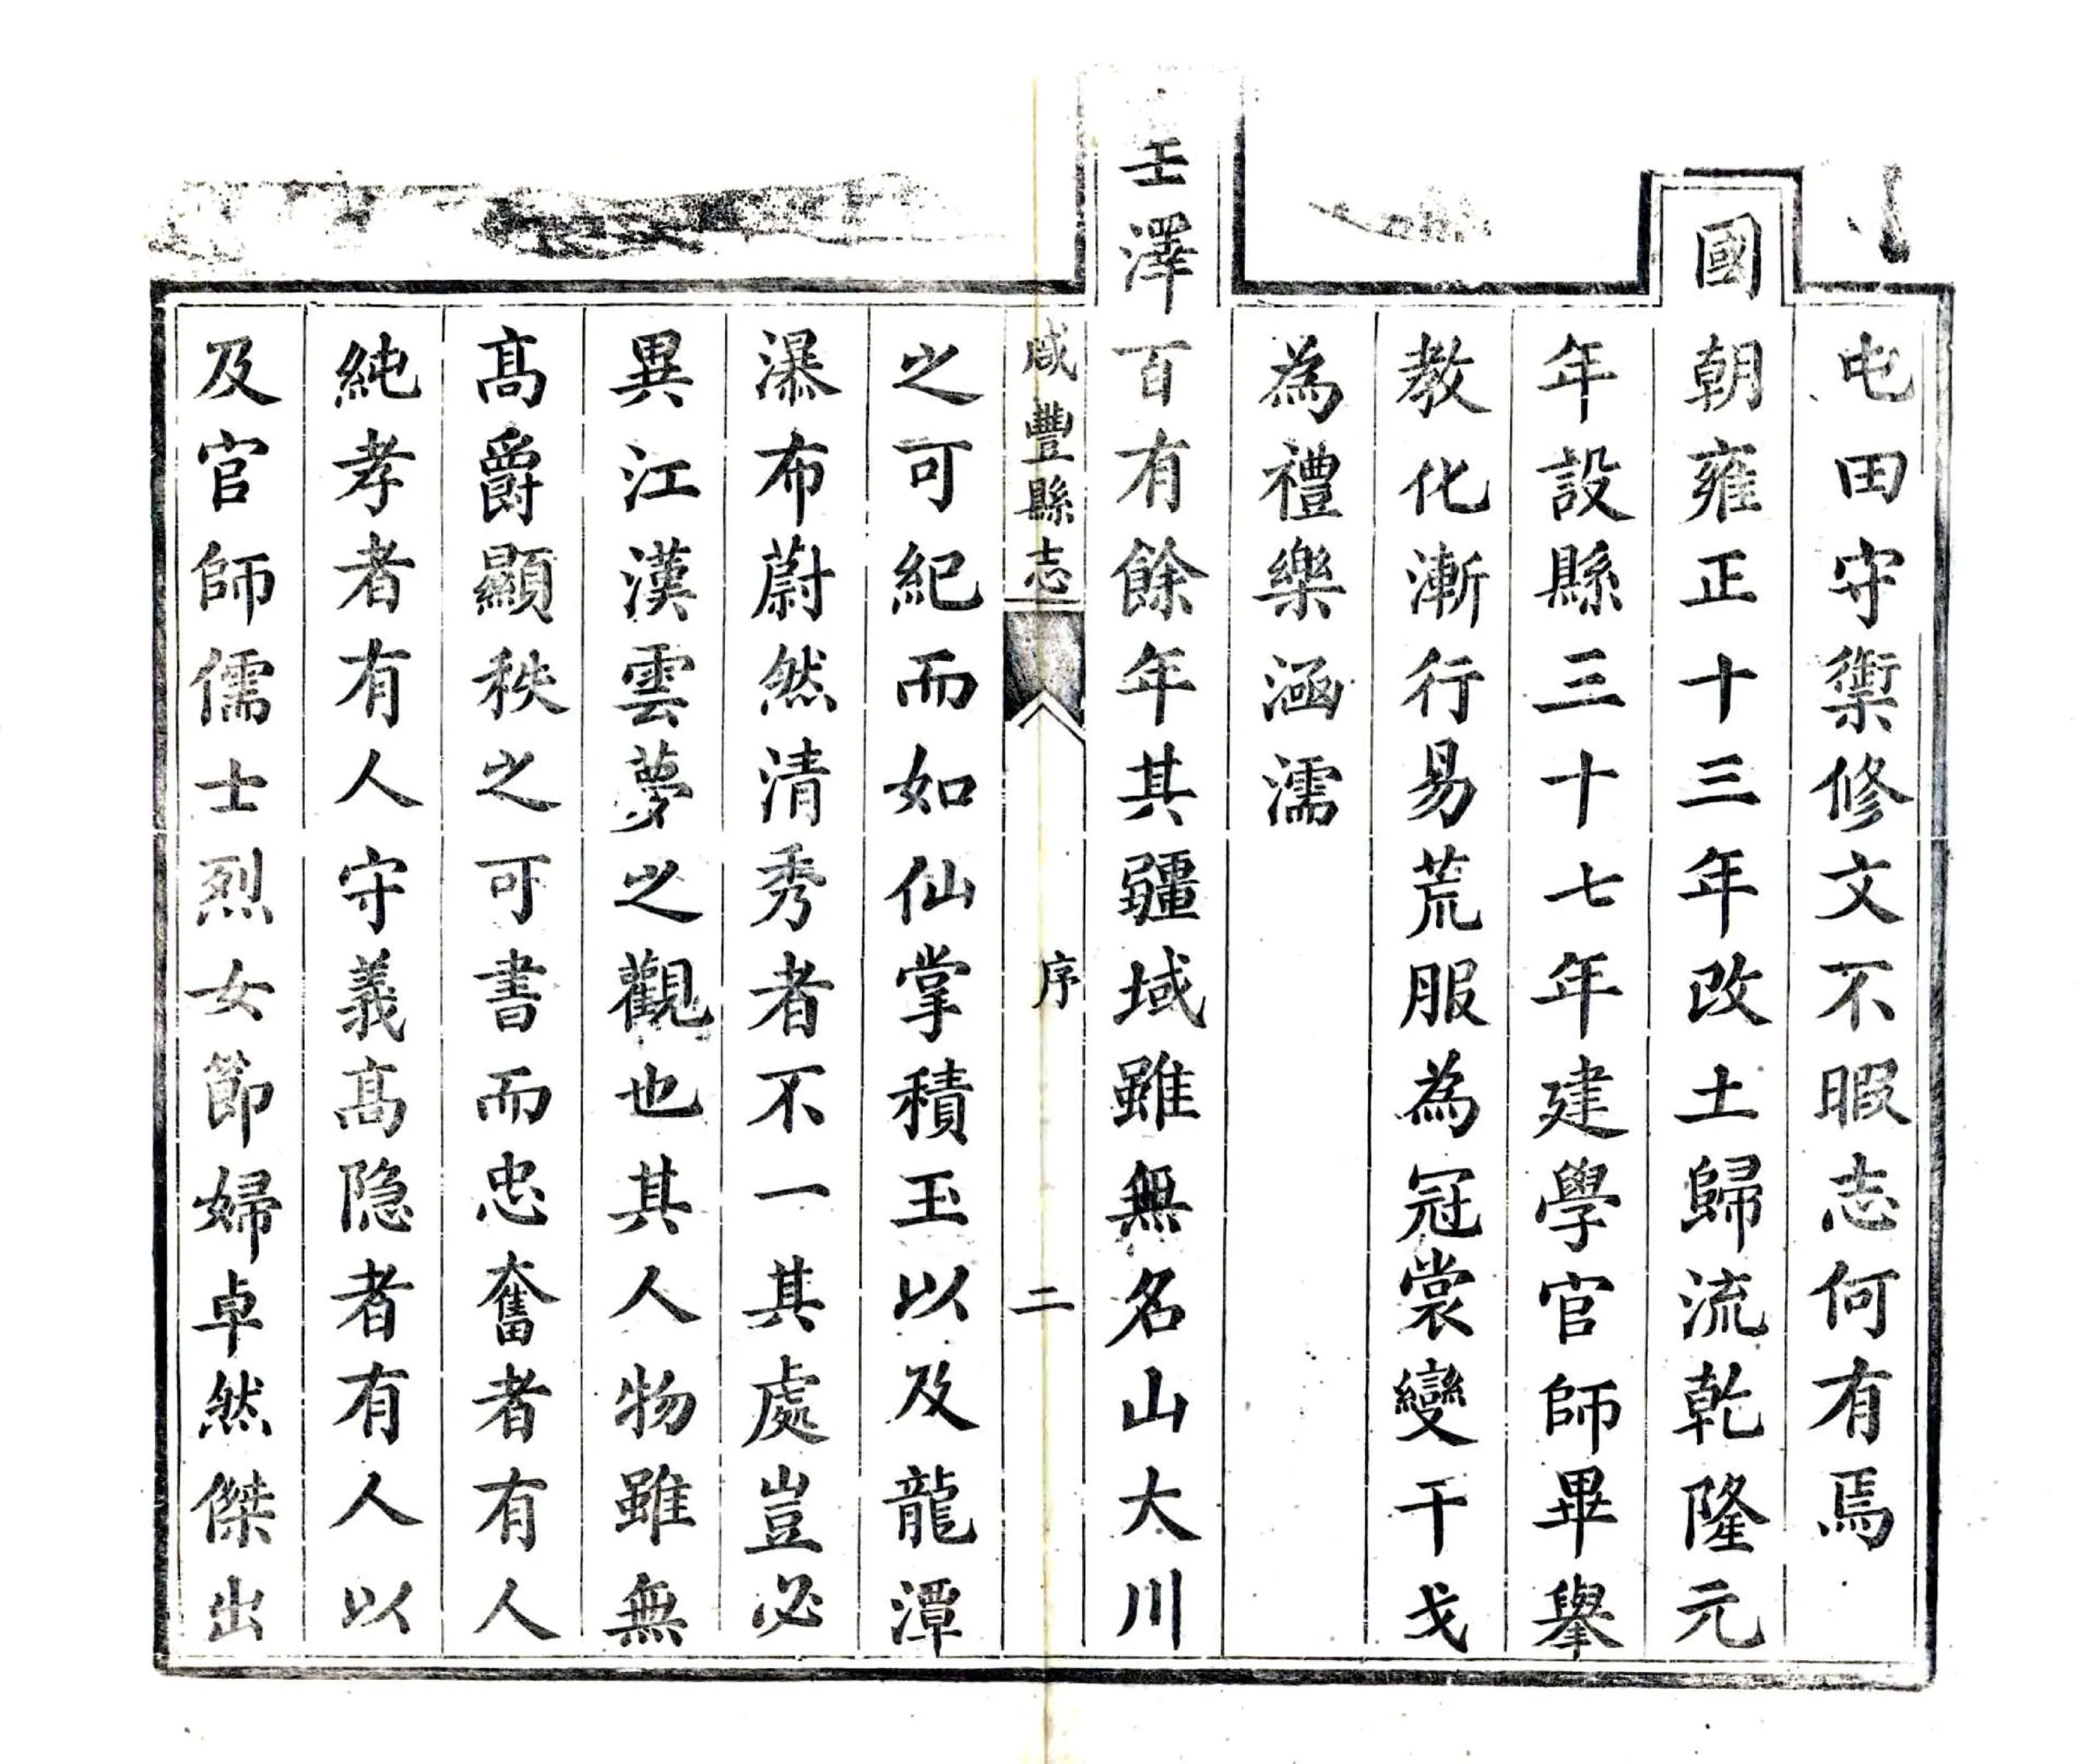 屯田守禦修文不暇志何有焉
國朝雍正十三年改土歸流乾隆元
年設縣三十七年建學官師畢舉
教化漸行易荒服為冠裳變干戈
為禮樂涵濡
聖澤百有餘年其疆域雖無名山大川
咸豐縣志 序 二
之可紀而如仙掌積玉以及龍潭
瀑布蔚然清秀者不一其處豈必
異江漢雲夢之觀也其人物雖無
髙爵顯秩之可書而忠奮者有人
純孝者有人守義髙隐者有人以
及官師儒士烈女節婦卓然傑出